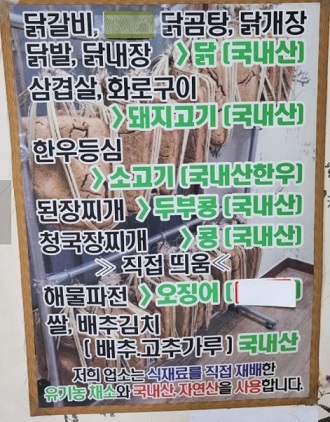 닭갈비, 닭곰탕, 닭개장
닭발, 닭내장 > 닭 (국내산)
삼겹살, 화로구이
> 돼지고기 (국내산)
한우등심
> 소고기 (국내산한우)
된장찌개 > 두부콩 (국내산)
청국장찌개 > 콩 (국내산)
≫ 직접 띄움 ≪
해물파전 > 오징어 (
쌀, 배추김치
( 배추.고추가루 ) 국내산
저희 업소는 식재료를 직접 재배한
유기농 채소와 국내산,자연산을 사용합니다.